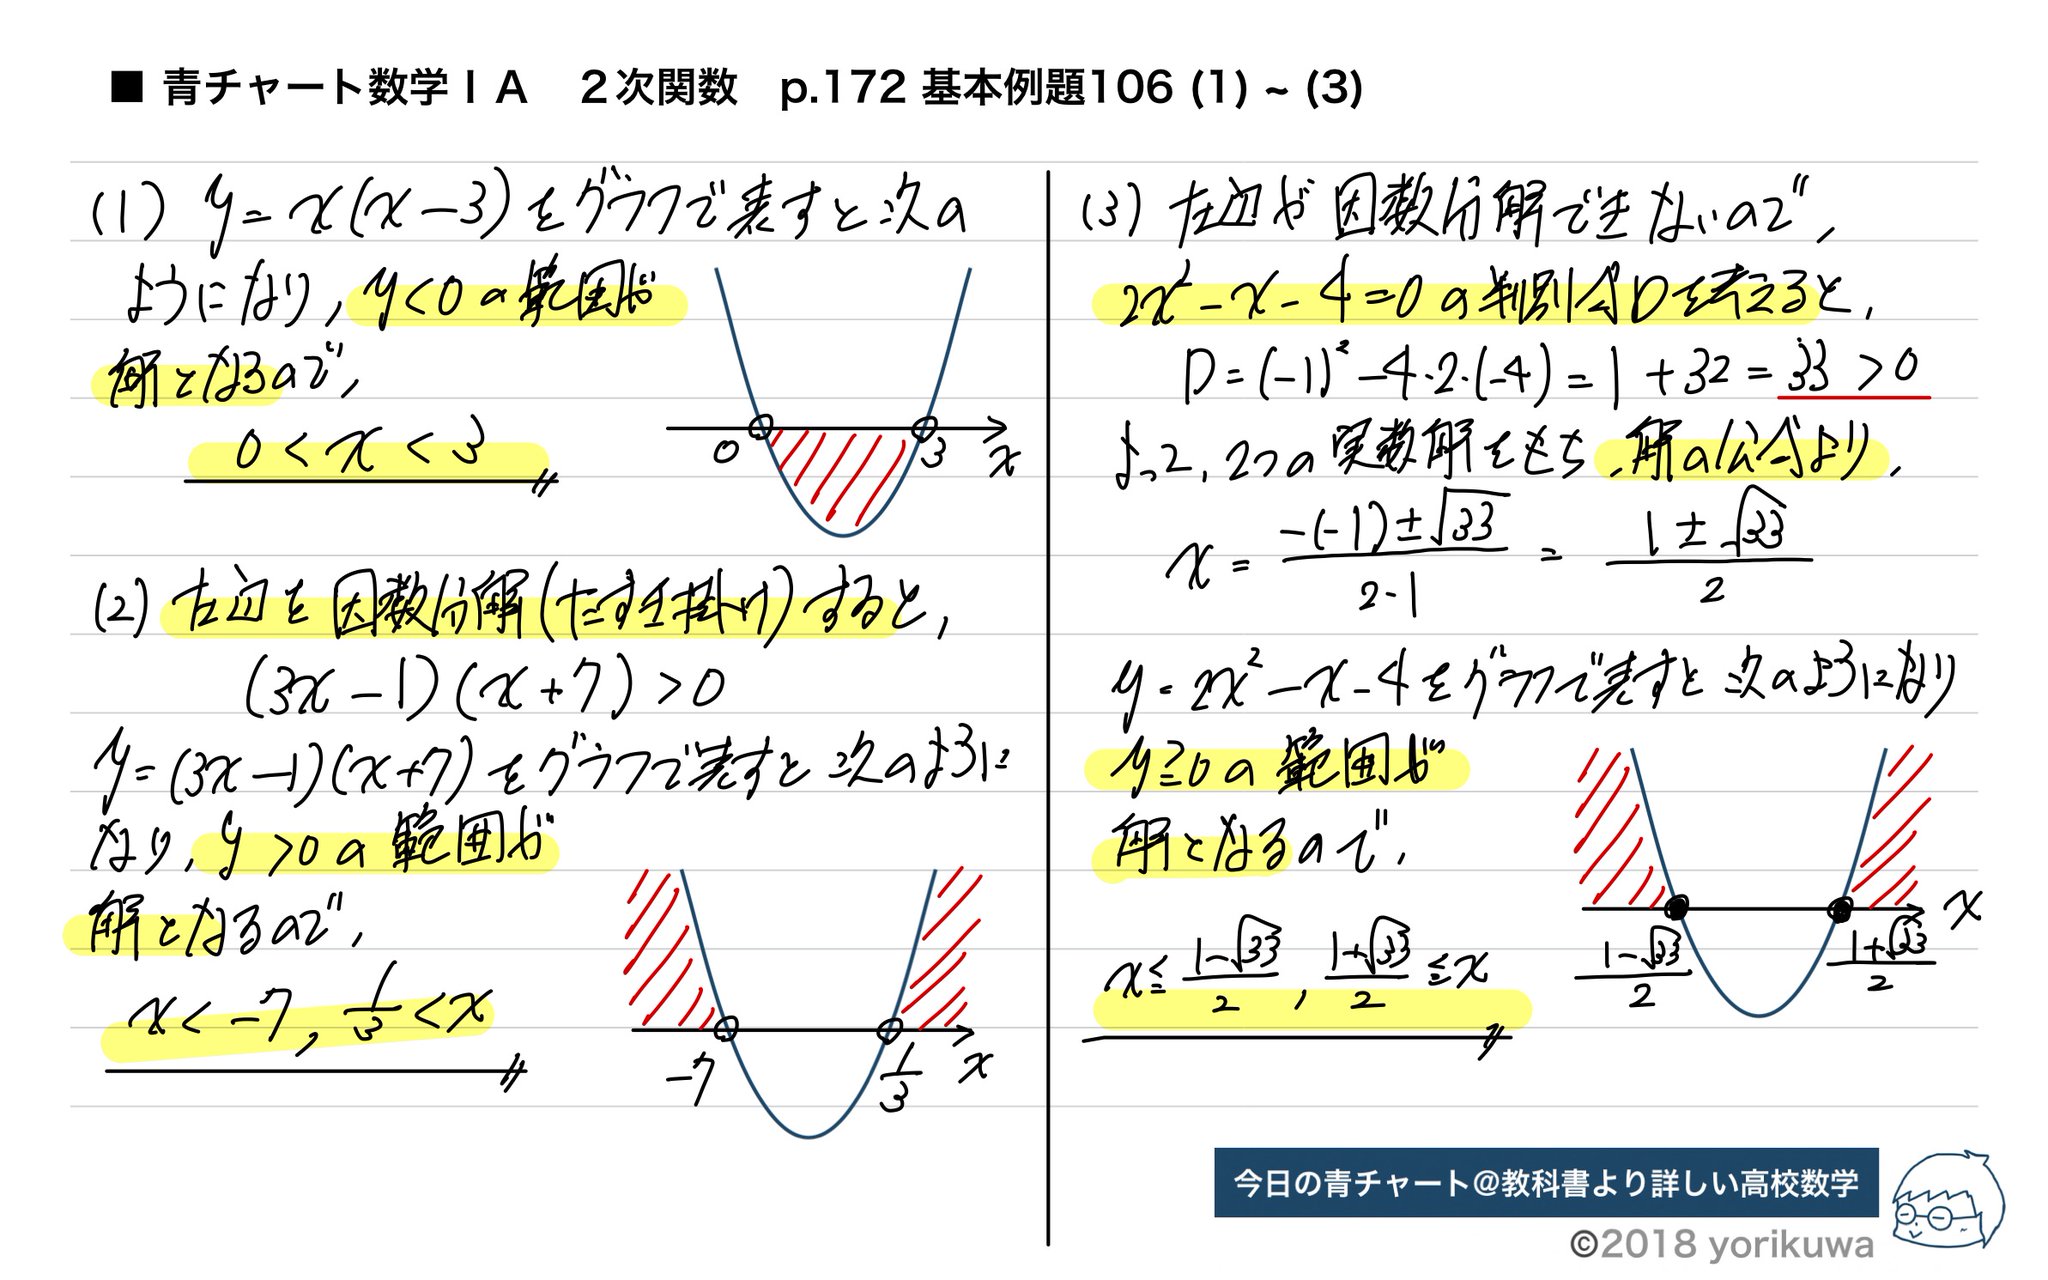 ■ 青チャート数学ⅠA　2次関数　p.172 基本例題106 (1) ~ (3)
(1) y=x(x-3)をグラフで表すと次の
ようになり, y<0の範囲が
解となるので,
0<x<3
0
3
x
(2) 左辺を因数分解(たすき掛け)すると,
(3x-1)(x+7)>0
y=(3x-1)(x+7)をグラフで表すと次のように
なり, y>0の範囲が
解となるので,
x<-7, 1/3<x
-7
1/3
x
(3) 左辺が因数分解できないので,
2x²-x-4=0の判別式Dを考えると,
D=(-1)²-4・2・(-4)=1+32=33>0
よって, 2つの実数解をもち, 解の公式より,
x=(-(-1)±√33)/(2・1)=(1±√33)/2
y=2x²-x-4をグラフで表すと次のようになり
y≧0の範囲が
解となるので,
x≦(1-√33)/2, (1+√33)/2≦x
(1-√33)/2
(1+√33)/2
x
今日の青チャート@教科書より詳しい高校数学
©2018 yorikuwa